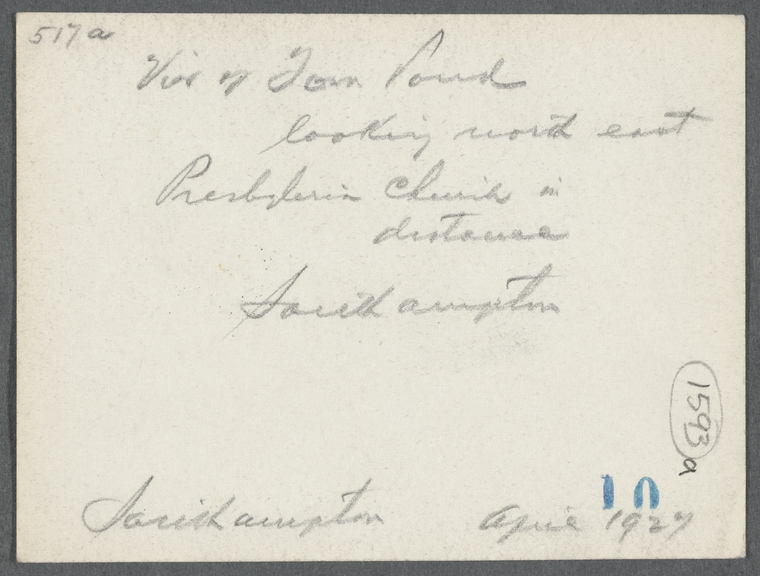 517a
View of Town Pond
looking north east
Presbyterian Church in
distance
Southampton
1593a
10
Southampton April 1927